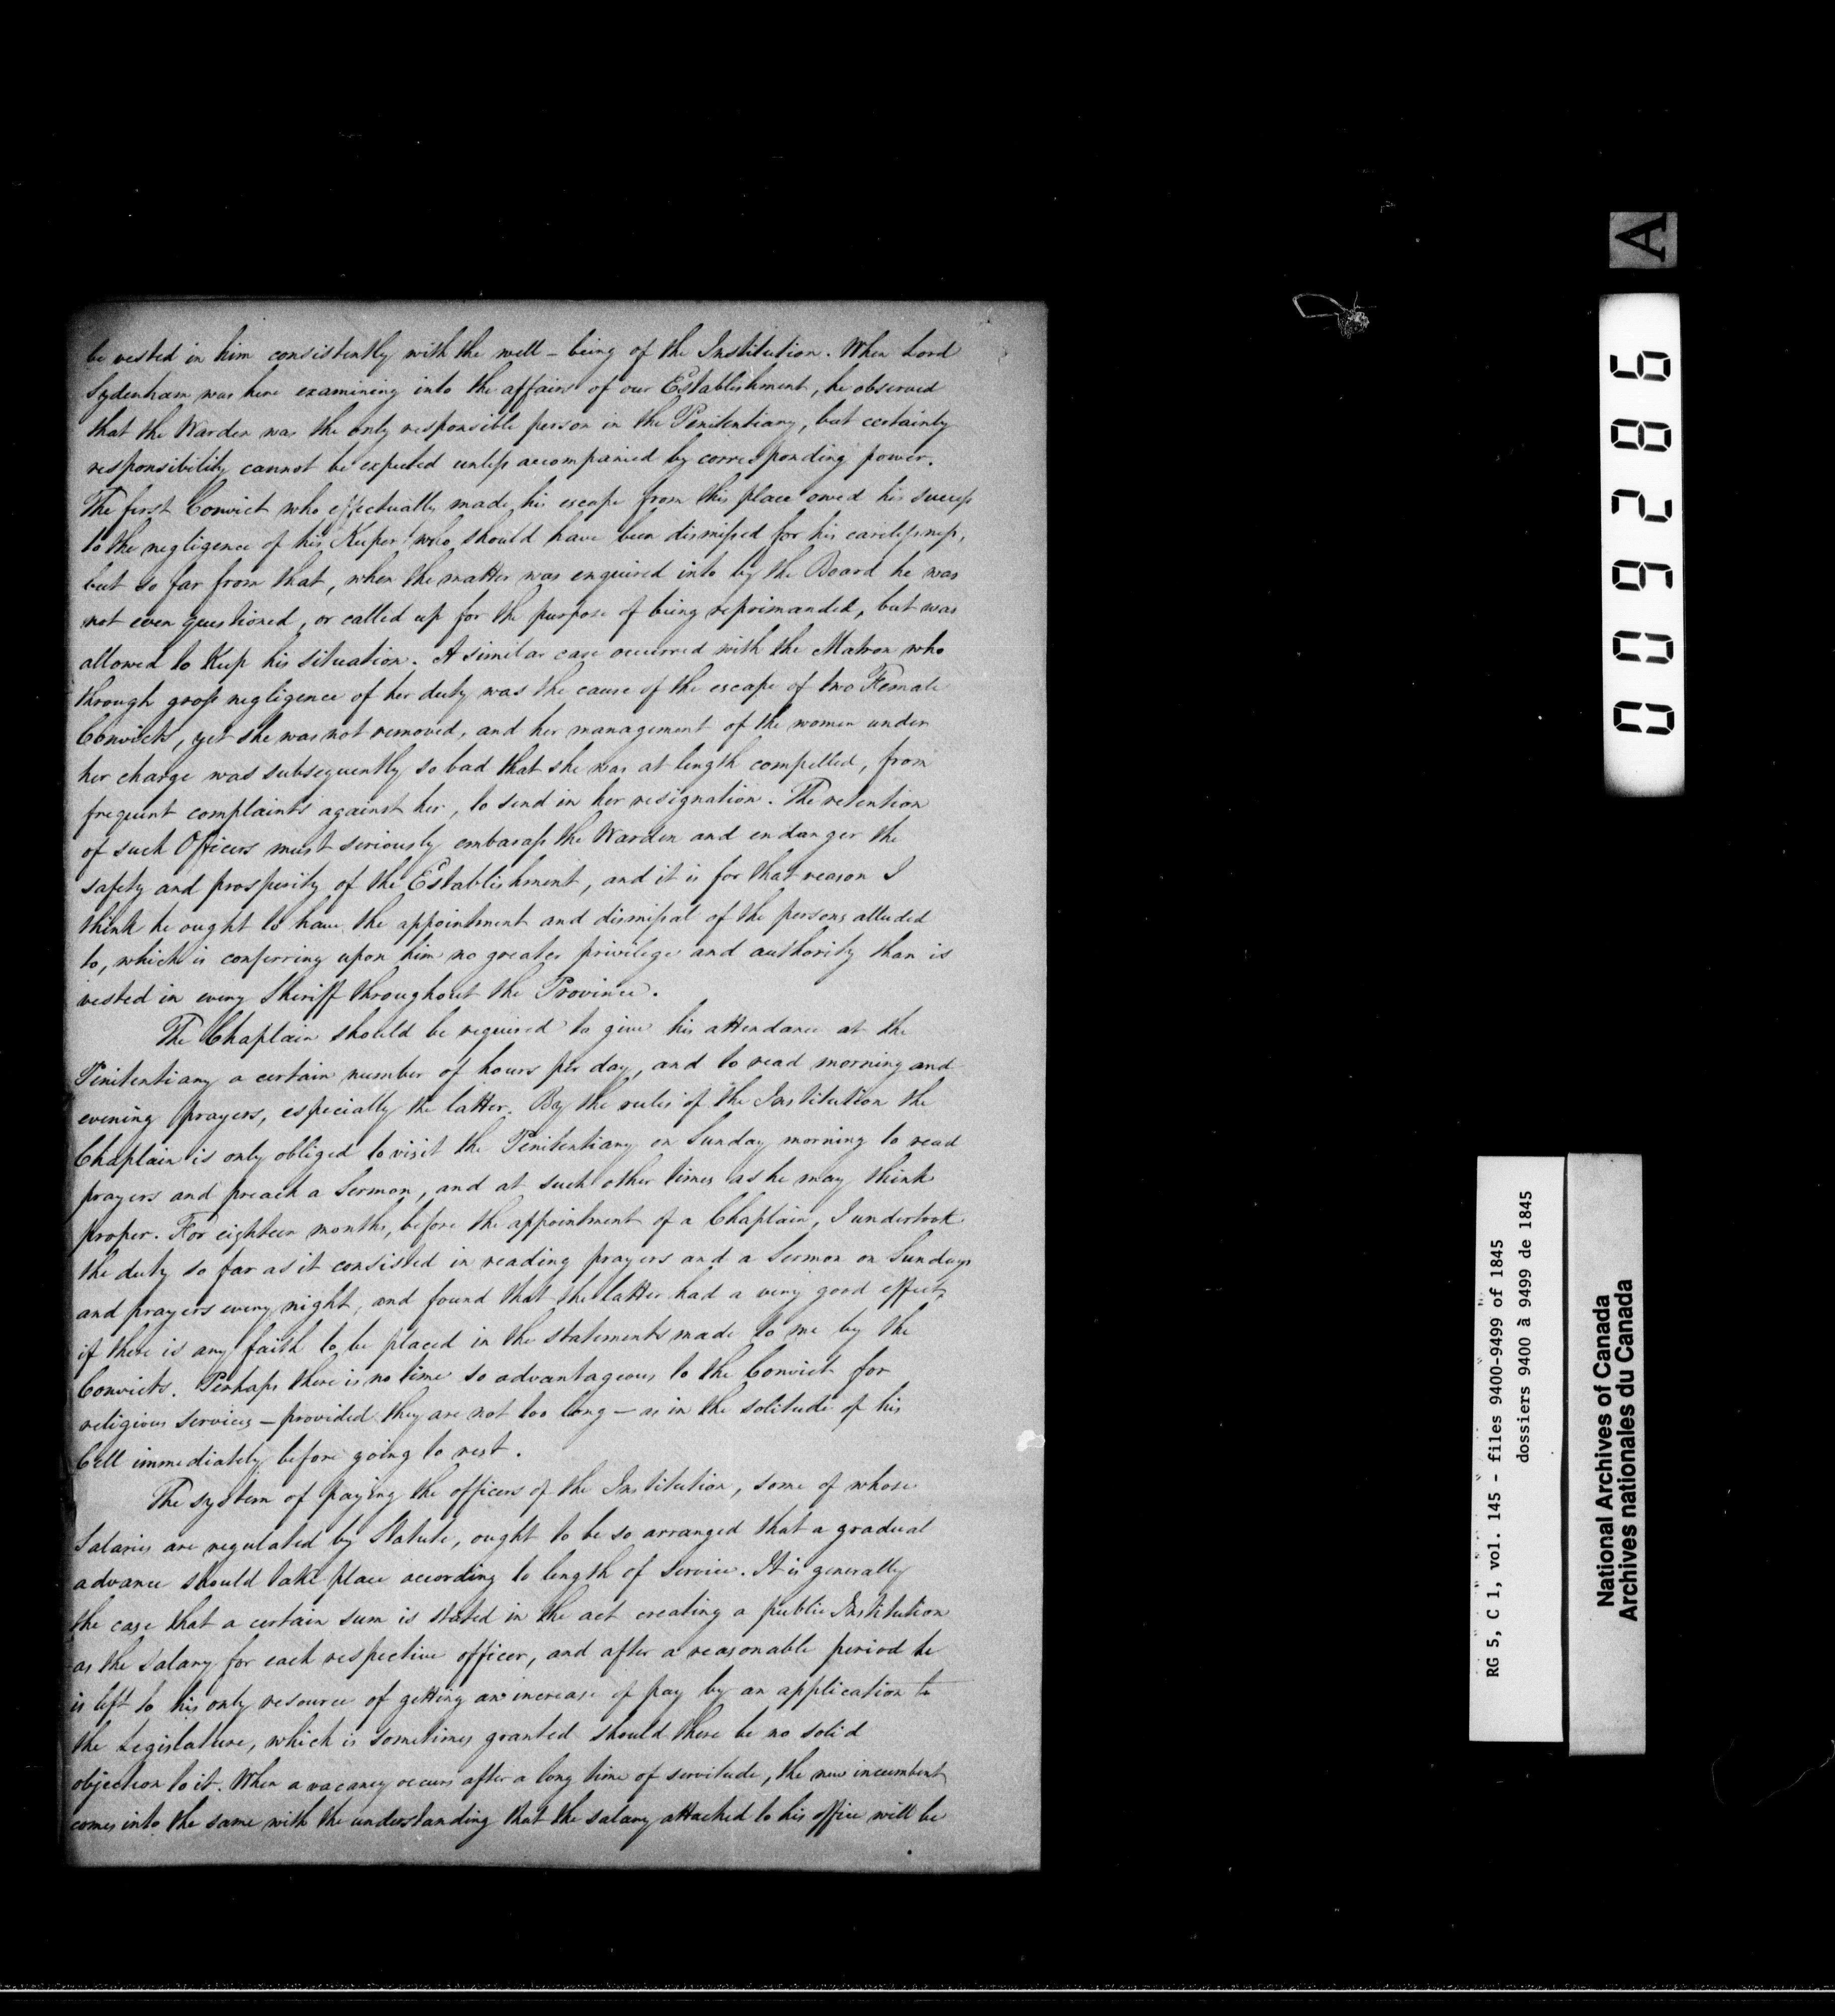 be vested in him consistently with the well-being of the Institution. When Lord
Sydenham was here examining into the affairs of our Establishment, he observed
that the Warden was the only responsible person in the Penitentiary, but certainly
responsibility cannot be expected unless accompanied by corresponding power.
The first Convict who effectually made his escape from this place owed his success
to the negligence of his Keeper who should have been dismissed for his carelessness,
but so far from that, when the matter was enquired into by the Board he was
not even questioned, or called up for the purpose of being reprimanded, but was
allowed to Keep his situation. A similar case occurred with the Matron who
through gross negligence of her duty was the cause of the escape of two Female
Convicts, yet she was not removed, and her management of the women under
her charge was subsequently so bad that she was at length compelled, from
frequent complaints against her, to send in her resignation. The retention
of such Officers must seriously embarass the Warden and endanger the
safety and prosperity of the Establishment, and it is for that reason I
think he ought to have the appointment and dismissal of the persons alluded
to, which is conferring upon him no greater privilege and authority than is
vested in every Sheriff throughout the Province.
The Chaplain should be required to give his attendance at the
Penitentiary a certain number of hours per day, and to read morning and
evening prayers, especially the latter. By the rules of the Institution the
Chaplain is only obliged to visit the Penitentiary on Sunday morning to read
prayers and preach a Sermon, and at such other times as he may think
proper. For eighteen months, before the appointment of a Chaplain, I undertook
the duty so far as it consisted in reading prayers and a Sermon on Sundays
and prayers every night, and found that the latter had a very good effect,
if there is any faith to be placed in the statements made to me by the
Convicts. Perhaps there is no time so advantageous to the Convict for
religious services – provided they are not too long – as in the solitude of his
Cell immediately before going to rest.
The system of paying the officers of the Institution, some of whose
Salaries are regulated by Statute, ought to be so arranged that a gradual
advance should take place according to length of service. It is generally
the case that a certain sum is stated in the act creating a public Institution
as the Salary for each respective officer, and after a reasonable period he
is left to his only resource of getting an increase of pay by an application to
the Legislature, which is sometimes granted should there be no solid
objection to it. When a vacancy occurs after a long time of servitude, the new incumbent
comes into the same with the understanding that the salary attached to his office will be
A
009286
RG 5, C 1, vol. 145 - files 9400-9499 of 1845
dossiers 9400 à 9499 de 1845
National Archives of Canada
Archives nationales du Canada